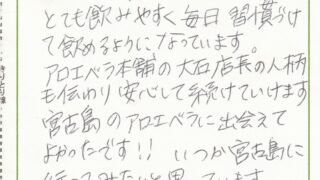 とても飲みやすく毎日習慣づけ
て飲めるようになっています。
アロエベラ本舗の大石店長の人柄
も伝わり安心して続けていけます
宮古島のアロエベラに出会えて
よかったです!! いつか宮古島に
行ってみたいと思っています
きりとり線